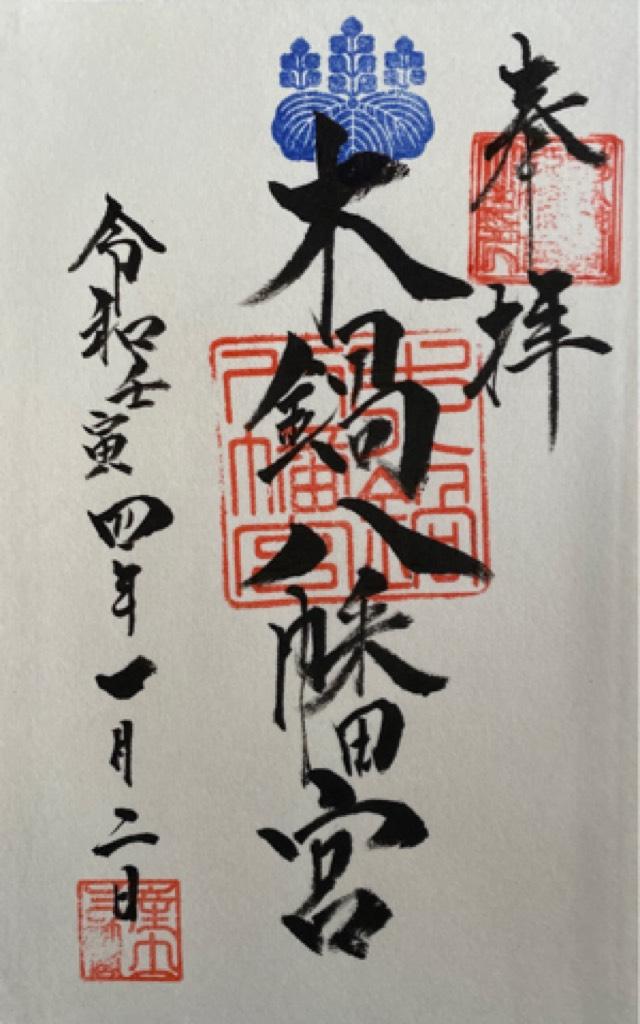 奉拝
木鍋八幡宮
令和壬寅四年一月二日